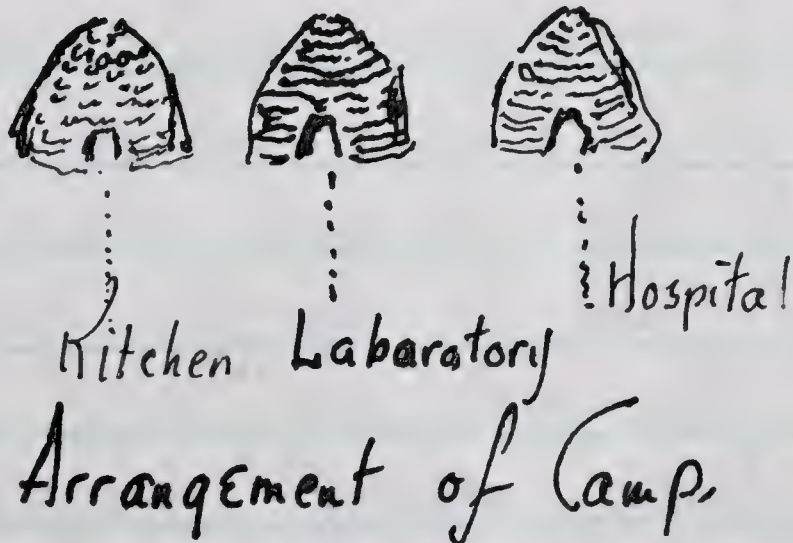 Kitchen Labaratory Hospital
Arrangement of Camp.